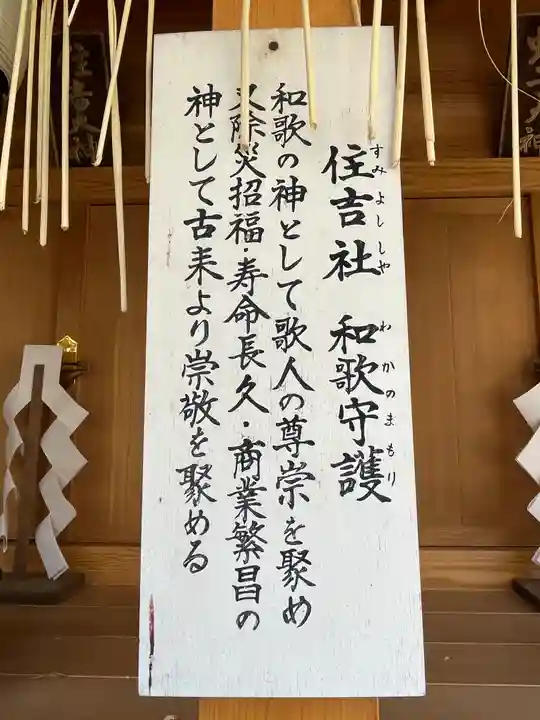 住吉社 和歌守護
すみよししや わかのまもり
和歌の神として歌人の尊崇を聚め
又除災招福・寿命長久・商業繁昌の
神として古来より崇敬を聚める
住吉大神